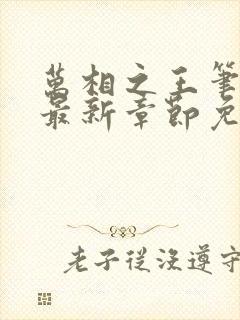 萬相之王筆
最新章節免
老子從沒遵守